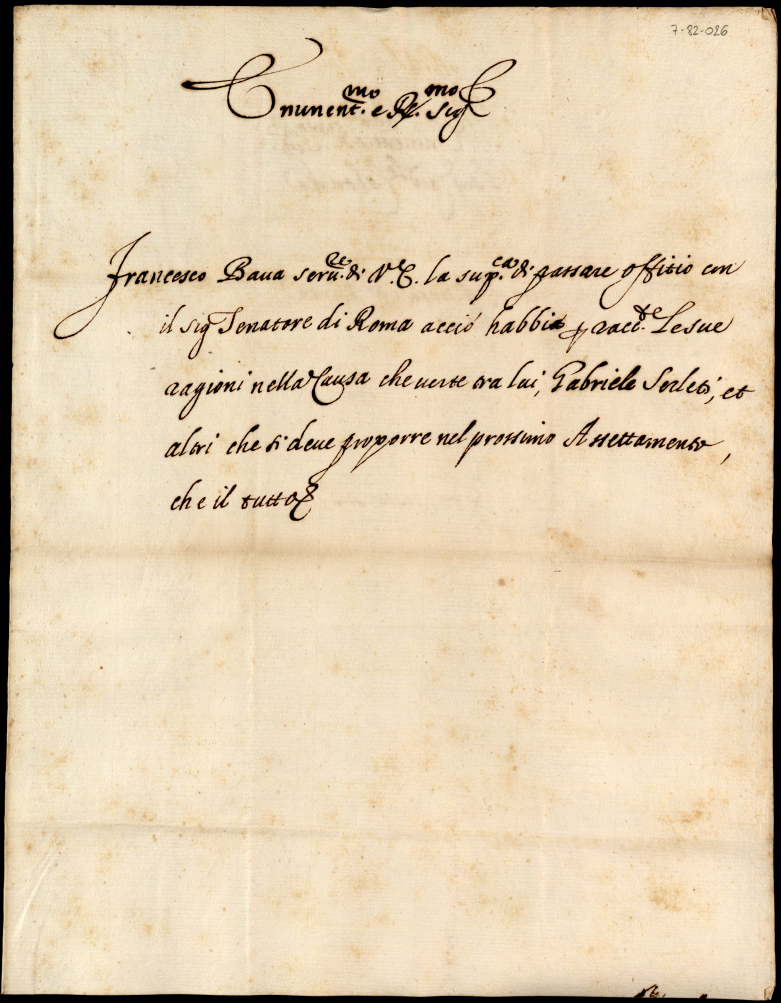 7-82-026
Eminent.mo e R.mo Sig.r
Francesco Baua seru.re di V. E. la sup.ca di passare offitio con
il Sig Senatore di Roma acciò habbia p racc.te Le sue
ragioni nella Causa che uerte tra lui, Gabriele Serleti, et
altri che si deue proporre nel prossimo Assettamento,
che il tutto